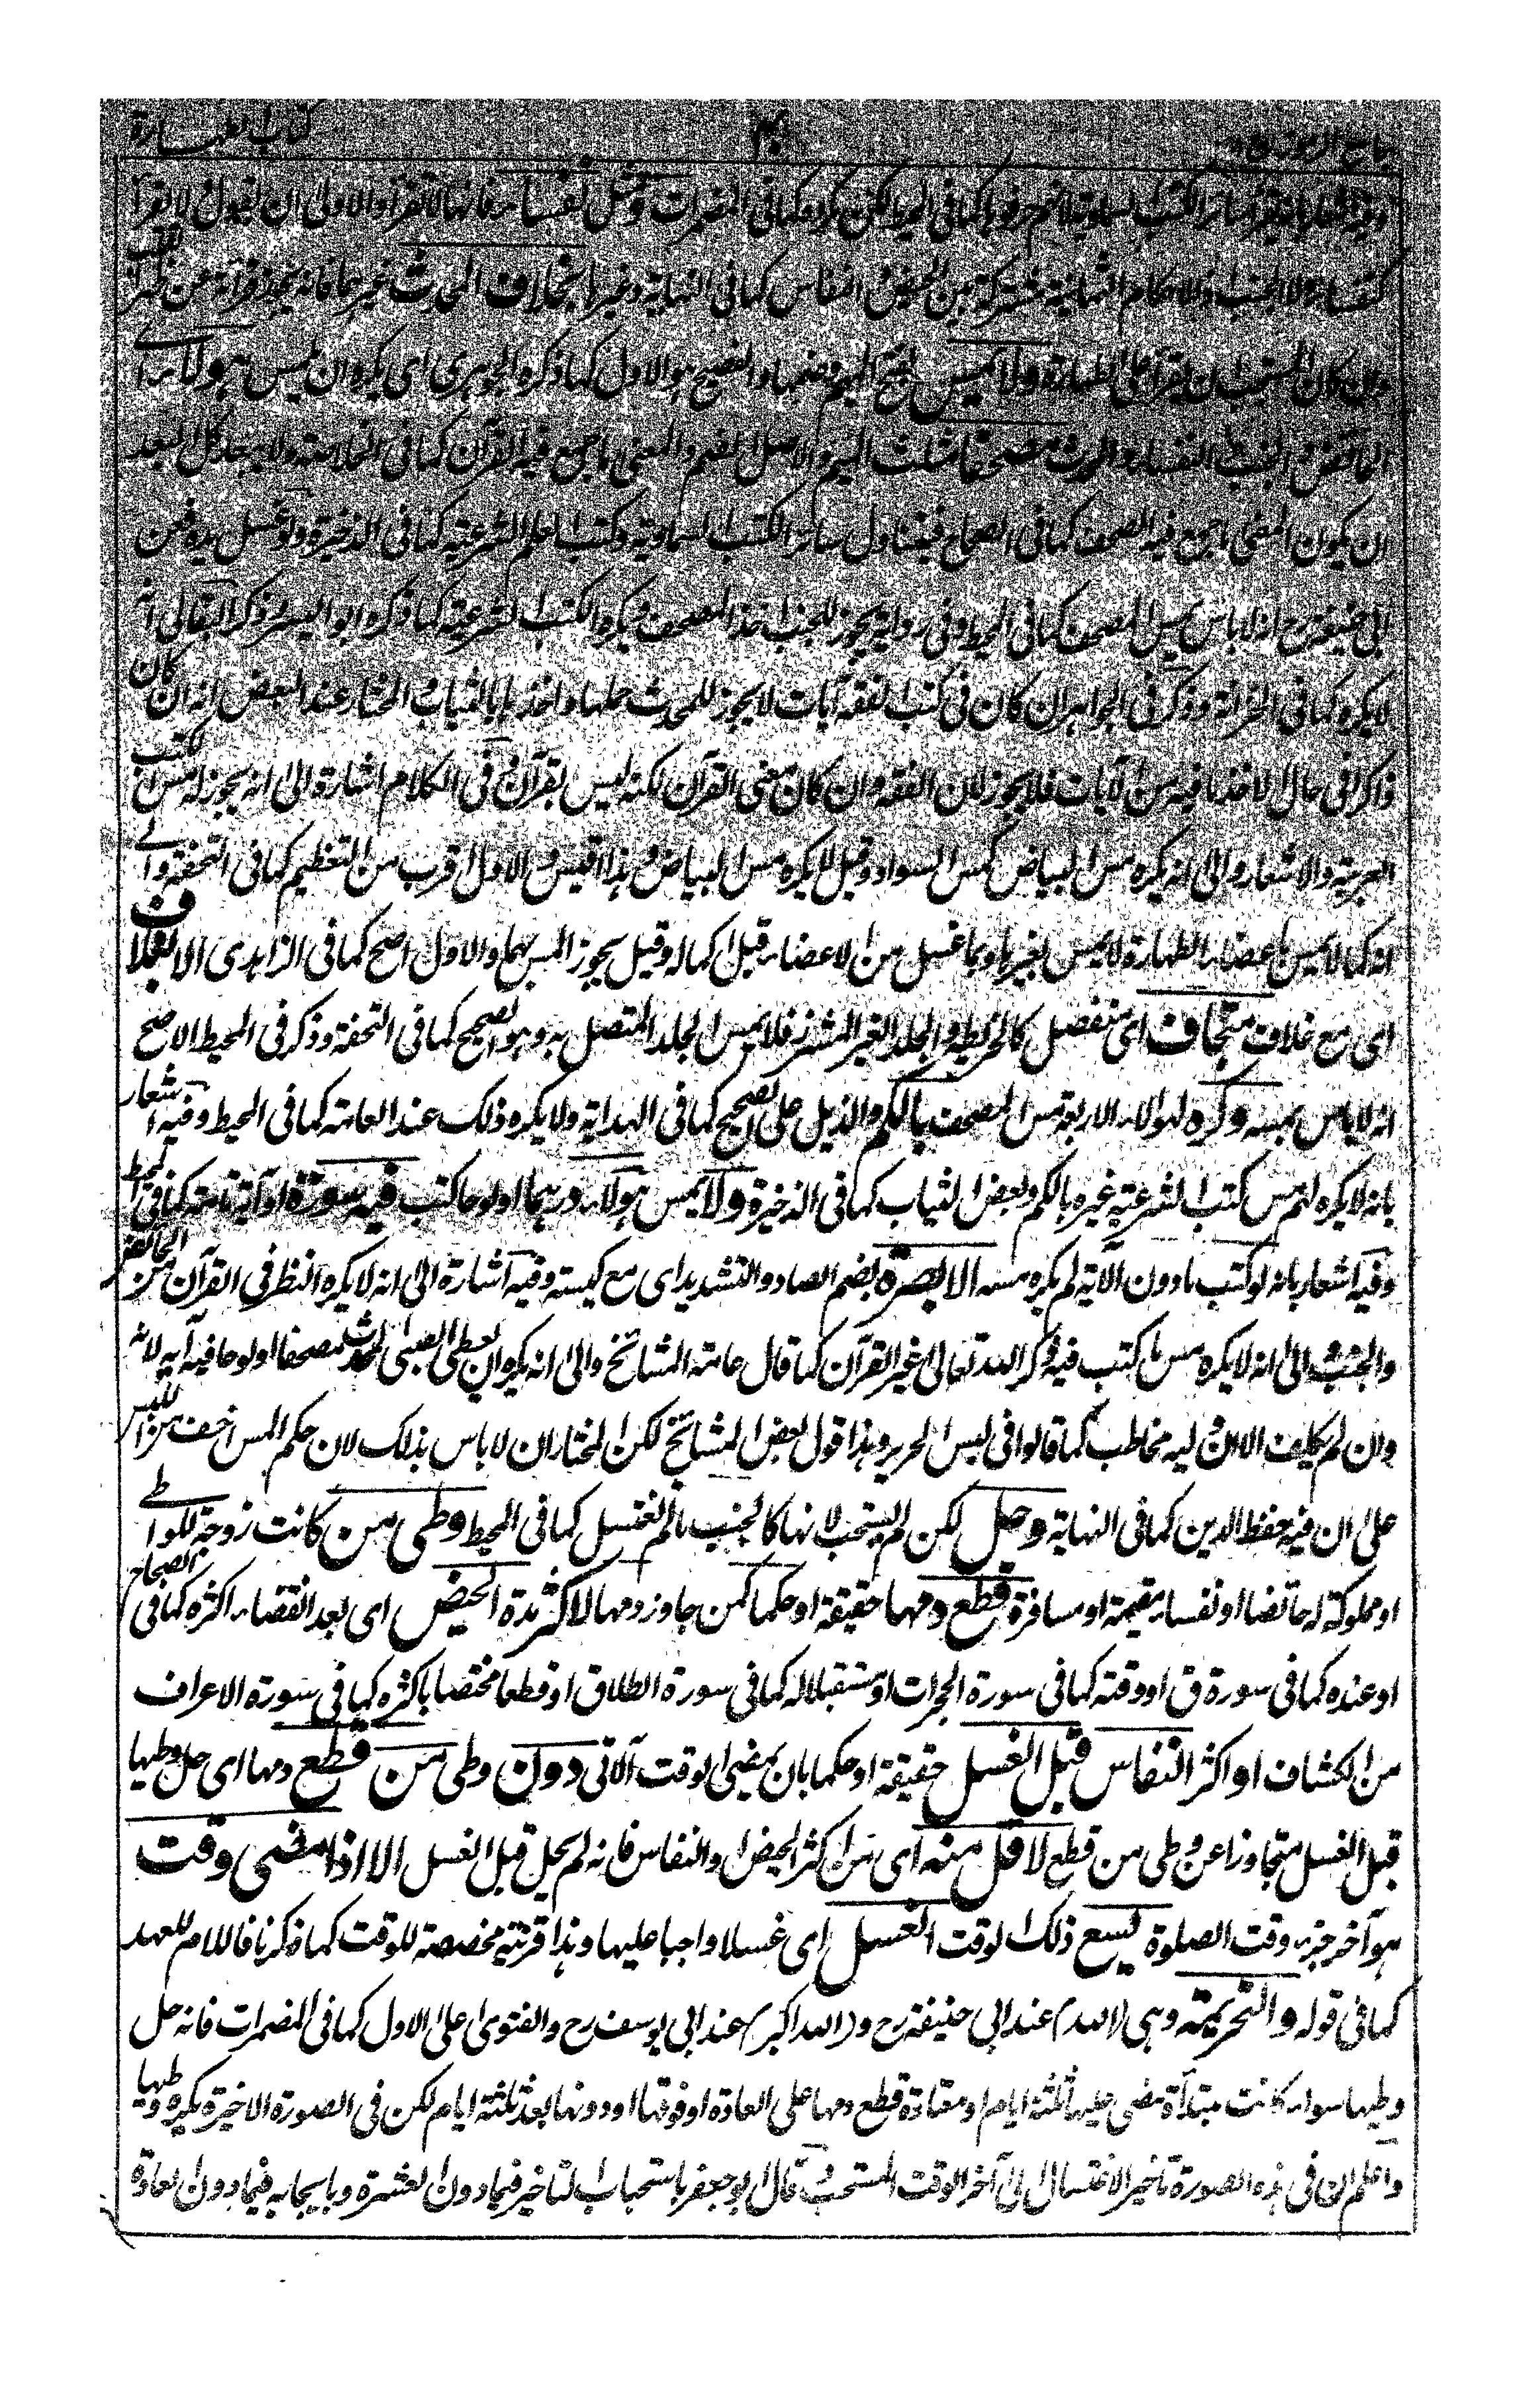 جامع الرموز ج ۱ ۴۰ كتاب الطهارة
لا تقرأ والاولى ان يقول لا تقرأ
كنفساء ولا الجنب والاحكام الثمانية مشتركة بين الحيض والنفاس كما فى النهاية وغيرها بخلاف المحدث
وان كان المستحب ان يقرأ على الطهارة ولا يمس بفتح الميم وضمها والفصيح هو الاول كما ذكره الجوهرى اى يكره ان يمس هؤلاء اى
الحائض والجنب والنفساء والمحدث مصحفا مثلث الميم والاصل الضم والمعنى ما جمع فيه القرآن كما فى الخلاصة ولا يبعد كل البعد
ان يكون المعنى ما جمع فيه الصحف كما فى الصحاح فيتناول سائر الكتب السماوية وكتب العلم الشرعية كما فى الذخيرة ولو غسل يده فعن
ابى حنيفة رح انه لا باس بمس المصحف كما فى المحيط وفى رواية يجوز للجنب اخذ المصحف ويكره الكتب الشرعية كما ذكره ابو اليسر وذكر البقالى انه
لا يكره كما فى الخزانة وذكر فى الجواهر ان كان فى كتب الفقه آيات لا يجوز للمحدث حملها واخذها بالثياب والمختار عند البعض انه ان كان
ذاكرا فى حال الاخذ ما فيه من الآيات فلا يجوز لان الفقه وان كان معنى القرآن لكنه ليس بقرآن وفى الكلام اشارة الى انه يجوز له مس كتب
العربية والاشعار والى انه يكره مس البياض كمس السواد وقيل لا يكره مس البياض وهذا اقيس والاول اقرب من التعظيم كما فى التحفة والى
انه كما لا يمس باعضاء الطهارة لا يمس بغيرها وبما غسل من الاعضاء قبل اكماله وقيل يجوز المس بهما والاول اصح كما فى الزاهدى الا بغلاف
اى مع غلاف متجاف اى منفصل كالخريطة والجلد الغير المشرز فلا يمس الجلد المتصل به وهو الصحيح كما فى التحفة وذكر فى المحيط الاصح
انه لا باس بمسه وكره لهؤلاء الاربعة مس المصحف بالكم والذيل على الصحيح كما فى الهداية ولا يكره ذلك عند العامة كما فى المحيط وفيه اشعار
بانه لا يكره لهم مس كتب الشرعية غيره بالكم وبعض الثياب كما فى الذخيرة ولا يمس هؤلاء درهما او لوحا كتب فيه سورة او آية تامة كما فى المحيط
وفيه اشعار بانه لو كتب ما دون الآية لم يكره مسه الا بصرة بضم الصاد والتشديد اى مع كيسة وفيه اشارة الى انه لا يكره النظر فى القرآن من الحائض
والجنب والى انه لا يكره مس ما كتب فيه ذكر الله تعالى غير القرآن كما قال عامة المشائخ والى انه يكره ان يعطى الصبى المحدث مصحفا او لوحا فيه آية لانه
وان لم يكلف الا ان وليه مخاطب كما قالوا فى لبس الحرير وهذا قول بعض المشائخ لكن المختار ان لا باس بذلك لان حكم المس اخف من اللبس
على ان فيه حفظ الدين كما فى النهاية وحل لكن لم يستحب لانها كالجنب ما لم تغتسل كما فى المحيط وطى من كانت زوجة للواطى
او مملوكة له حائضا او نفساء مقيمة او مسافرة قطع دمها حقيقة او حكما كمن جاوز دمها لاكثر مدة الحيض اى بعد انقضاء اكثره كما فى الصحاح
او عنده كما فى سورة ق او وقته كما فى سورة الحجرات او مستقبلا له كما فى سورة الطلاق او قطعا مختصا باكثره كما فى سورة الاعراف
من الكشاف او اكثر النفاس قبل الغسل حقيقة او حكما بان يمضى الوقت الآتى دون وطى من قطع دمها اى حل وطيها
قبل الغسل متجاوزا عن وطى من قطع لاقل منه اى من اكثر الحيض او النفاس فانه لم يحل قبل الغسل الا اذا مضى وقت
هو آخر جزء وقت الصلوة يسع ذلك الوقت الغسل اى غسلا واجبا عليها وهذا قرينة مخصصة للوقت كما ذكرنا فاللام للعهد
كما فى قوله والتحريمة وهى (الله) عند ابى حنيفة رح و(الله اكبر) عند ابى يوسف رح والفتوى على الاول كما فى المضمرات فانه حل
وطيها سواء كانت مبتدأة مضى عليها ثلثة ايام او معتادة قطع دمها على العادة او فوقها او دونها بعد ثلثة ايام لكن فى الصورة الاخيرة يكره وطيها
واعلم ان فى هذه الصورة تاخير الاغتسال الى آخر الوقت المستحب وقال ابو جعفر باستحباب التاخير فيما دون العشرة وبايجابه فيما دون العادة